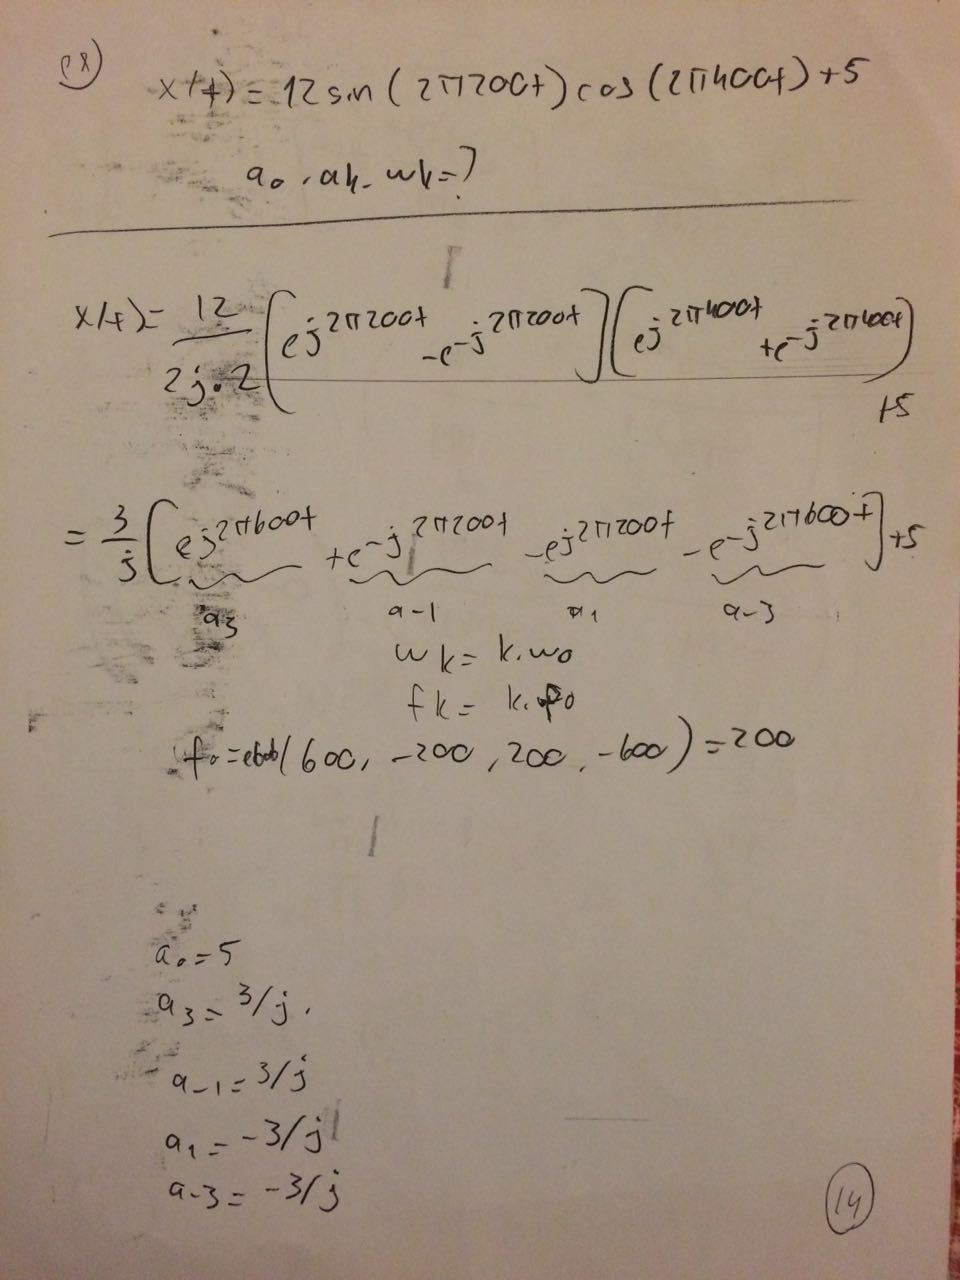 ex)
x(t) = 12 sin (2π200t) cos (2π400t) + 5
a₀, ak, wk = ?
x(t) = 12/(2j.2) (e^(j2π200t) - e^(-j2π200t)] (e^(j2π400t) + e^(-j2π400t)) + 5
= 3/j [e^(j2π600t) + e^(-j2π200t) - e^(j2π200t) - e^(-j2π600t)] + 5
a₃ a-1 a₁ a-3
wk = k.w₀
fk = k.f₀
f₀ = ebob(600, -200, 200, -600) = 200
a₀ = 5
a₃ = 3/j.
a-1 = 3/j
a₁ = -3/j
a-3 = -3/j
14